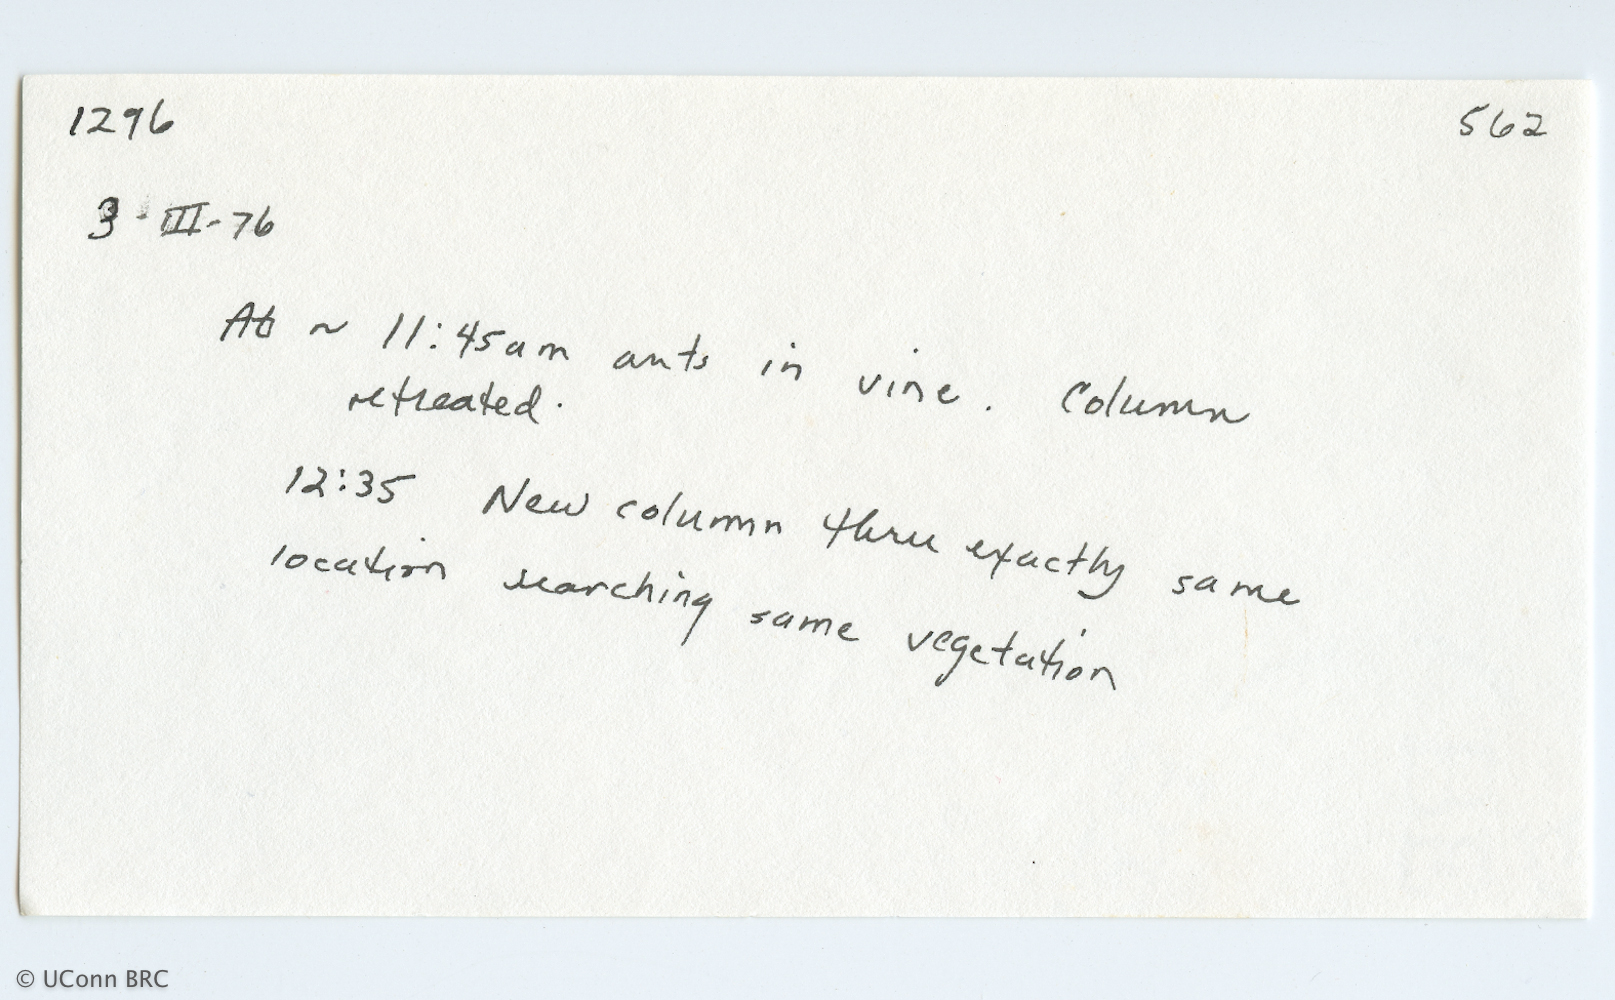 1296 562
3-III-76
At ~ 11:45am ants in vine. Column
retreated.
12:35 New column thru exactly same
location searching same vegetation
© UConn BRC